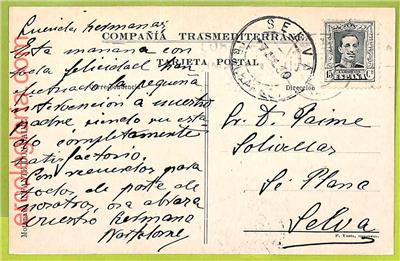 COMPAÑÍA TRASMEDITERRÁNEA
TARJETA POSTAL
Correspondencia
Dirección
Queridos hermanos
Esta mañana con
toda felicidad han
efectuado la pequeña
intervención a nuestro
padre siendo su estado
completamente
satisfactorio.
Con recuerdos para
todos de parte de
nosotros, os abraza
vuestro hermano
Bartolome
SELVA
ESPAÑA
15 Cs
Sr. D. Jaime
Solivellas
Sa Plana
Selva